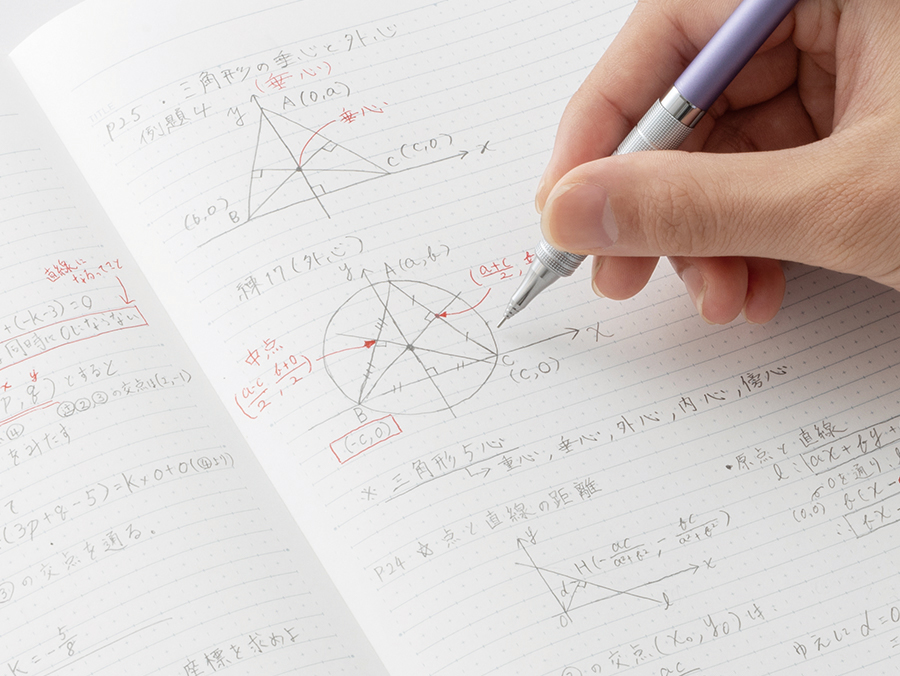 直線に
+(-k-3)=0
同時に0にならない
x y
p, q) とすると
②③の交点は(2,-1)
をみたす
(3p+q-5)=k×0+0(④より)
③の交点を通る。
k=-5/8
座標を求めよ
P25・三角形の垂心と外心
(垂心)
例題4
y
A(0,a)
垂心
C(c,0)
x
(b,0)
B
練17(外心)
y
A(a,b)
(a+c/2,
中点
(a-c/2, b+0/2)
x
C
(c,0)
B
(-c,0)
※三角形5心
↳ 重心,垂心,外心,内心,傍心
P24 ☆点と直線の距離
y
H(-ac/a²+b², -bc/a²+b²)
d
x
O
l
・原点と直線
l:(ax+by+
Oを通り,
(0,0)
b(x-
bx-
の交点(x₀,y₀)は:
ac
ゆえに d=0
=